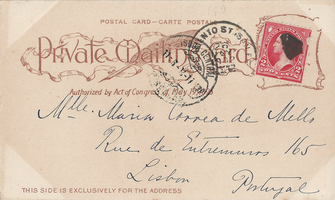 POSTAL CARD—CARTE POSTALE
Private Mailing Card
Authorized by Act of Congress of May 19,
Mlle. Maria Correa de Mello
Rue de Entremuros 165
Lisbon Portugal
THIS SIDE IS EXCLUSIVELY FOR THE ADDRESS